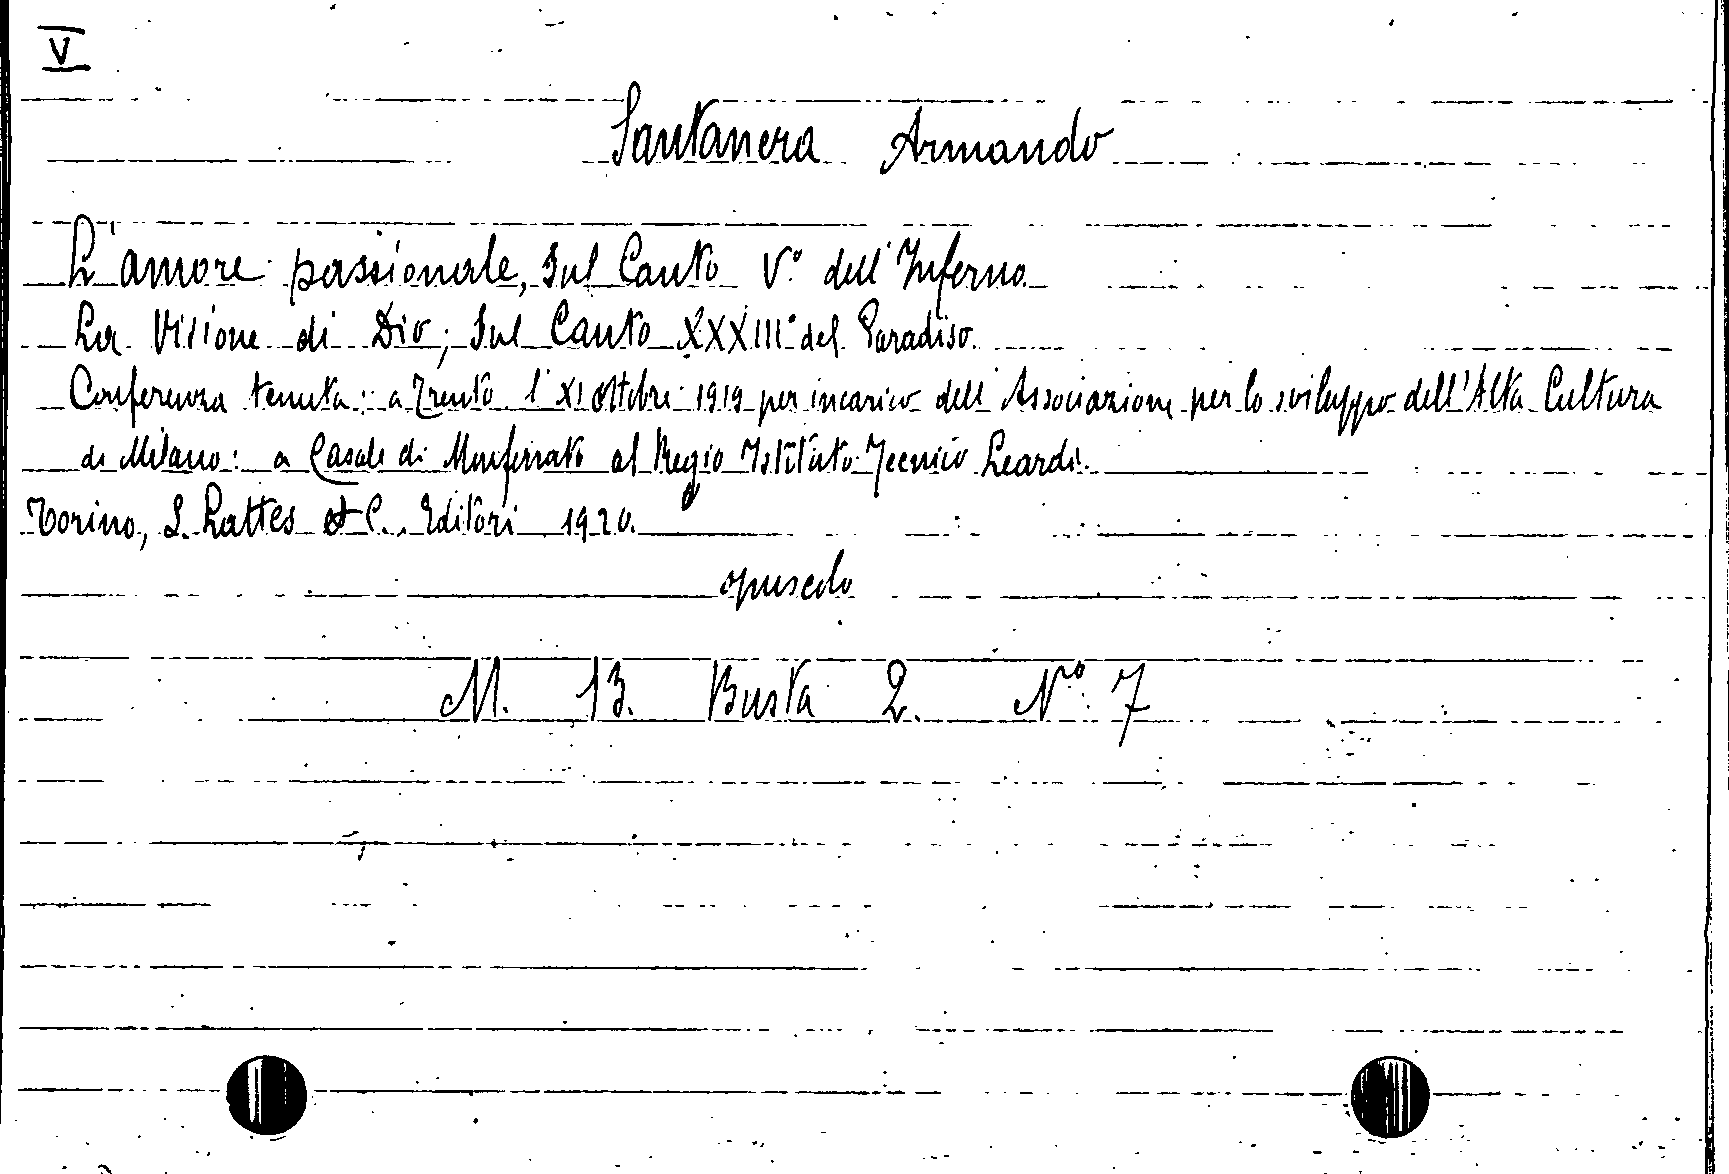 V
Santanera Armando
L'amore passionale, Sul Canto V° dell'Inferno.
La Visione di Dio; Sul Canto XXXIII° del Paradiso.
Conferenza tenuta: a Trento l'XI Ottobre 1919 per incarico dell'Associazione per lo sviluppo dell'Alta Cultura
di Milano: a Casale di Monferrato al Regio Istituto Tecnico Leardi.
Torino, S. Lattes et C. Editori 1920.
opuscolo
M. 13. Busta 2. N° 7